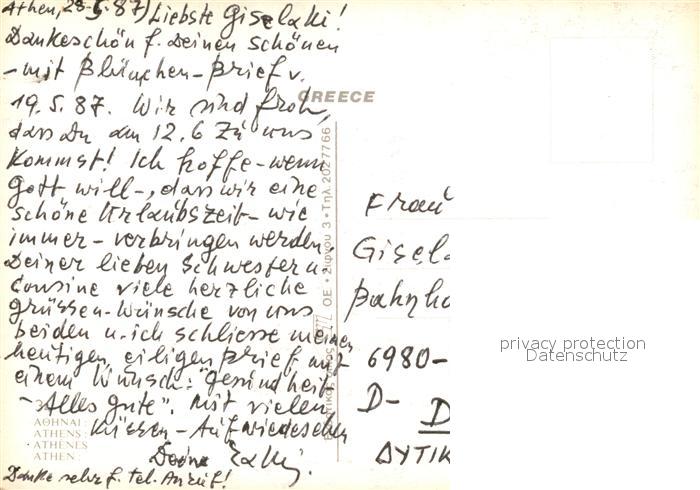 Athen, 28-5.87) Liebste Giselaki!
Dankeschön f. Deinen schönen
-mit Blümchen-Brief v.
19.5.87. Wir sind froh,
dass Du am 12.6 zu uns
kommst! Ich hoffe-wenn
Gott will-, dass wir eine
schöne Urlaubszeit-wie
immer-verbringen werden.
Deiner lieben Schwester u.
Cousine viele herzliche
Grüssen-Wünsche von uns
beiden u. ich schliesse meinen
heutigen, eiligen Brief mit
einem Wunsch: "Gesundheit
-Alles Gute". Mit vielen
Küssen-Aufwiedesehen
Deine
Danke sehr f. tel. Anruf!
GREECE
ΟΕ • Σίφνου 3 • Τηλ. 2027766
ΑΘΗΝΑΙ
ATHENS:
ATHÈNES
ATHEN:
Frau
Gisela
Bahnho
6980-
D-
D
ΔΥΤΙΚ
privacy protection
Datenschutz